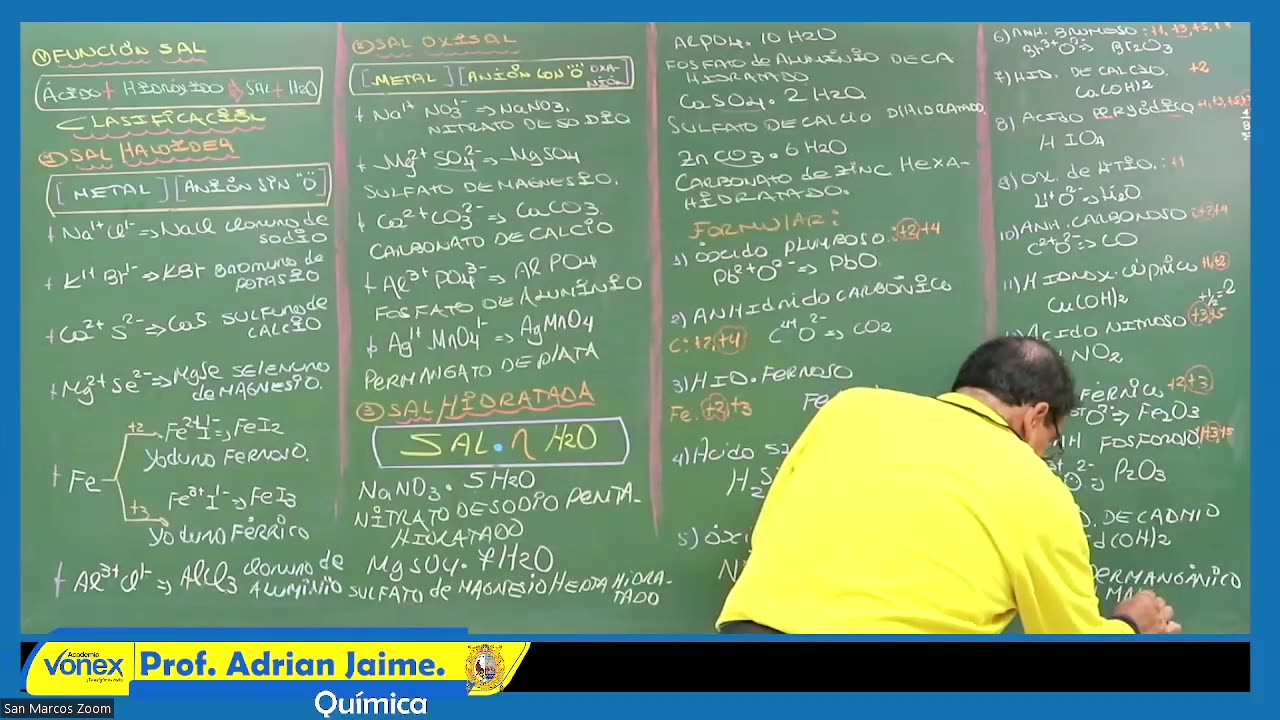 ① FUNCIÓN SAL
ÁCIDO + HIDRÓXIDO → SAL + H2O
CLASIFICACIÓN
① SAL HALOIDEA
[METAL] [ANIÓN SIN "O"]
Na1+ Cl1- ⇒ NaCl CLORURO de
SODIO
K1+ Br1- ⇒ KBr BROMURO de
POTASIO
Ca2+ S2- ⇒ CaS SULFURO de
CALCIO
Mg2+ Se2- ⇒ MgSe SELENURO
de MAGNESIO.
+2 Fe2+ I1- ⇒ FeI2
YODURO FERROSO.
Fe
+3 Fe3+ I1- ⇒ FeI3
YODURO FÉRRICO
Al3+ Cl1- ⇒ AlCl3 CLORURO de
ALUMINIO
② SAL OXISAL
[METAL] [ANIÓN CON "O" OXA-
NIÓN]
Na1+ NO3 1- ⇒ NaNO3.
NITRATO DE SODIO
Mg2+ SO4 2- ⇒ MgSO4
SULFATO DE MAGNESIO.
Ca2+ CO3 2- ⇒ CaCO3
CARBONATO DE CALCIO
Al3+ PO4 3- ⇒ AlPO4
FOSFATO DE ALUMINIO
Ag1+ MnO4 1- ⇒ AgMnO4
PERMANGATO DE PLATA
③ SAL HIDRATADA
SAL . n H2O
NaNO3 . 5H2O
NITRATO DE SODIO PENTA-
HIDRATADO
MgSO4 . 7H2O
SULFATO de MAGNESIO HEPTA HIDRA-
TADO
AlPO4 . 10 H2O
FOSFATO de ALUMINIO DECA
HIDRATADO
CaSO4 . 2 H2O
SULFATO DE CALCIO DIHIDRATADO.
ZnCO3 . 6 H2O
CARBONATO de ZINC HEXA-
HIDRATADO.
FORMULAR:
1) ÓXIDO PLUMBOSO : +2 +4
Pb2+ O2- ⇒ PbO
2) ANHIDRIDO CARBÓNICO
C: +2, +4 C4+ O2- ⇒ CO2
3) HID. FERROSO
Fe. +2 +3 Fe
4) ÁCIDO
H2S
5) ÓXI
6) ANH. BROMOSO : +1, +3, +5, +7
Br3+ O2- ⇒ Br2O3
7) HID. DE CALCIO. +2
Ca(OH)2
8) ACIDO PERYÓDICO +1, +3, +5, +7
HIO4
9) OX. de LITIO. : +1
Li1+ O2- ⇒ Li2O
10) ANH. CARBONOSO : +2, +4
C2+ O2- ⇒ CO
11) HIDROX. CÚPRICO +1, +2
Cu(OH)2
ÁCIDO NITROSO +3 +5
NO2
FÉRRICO +2 +3
O2- ⇒ Fe2O3
FOSFOROSO +3 +5
P2O3
DE CADMIO
d(OH)2
PERMANGÁNICO
Academia
VONEX
Prof. Adrian Jaime.
Química
San Marcos Zoom